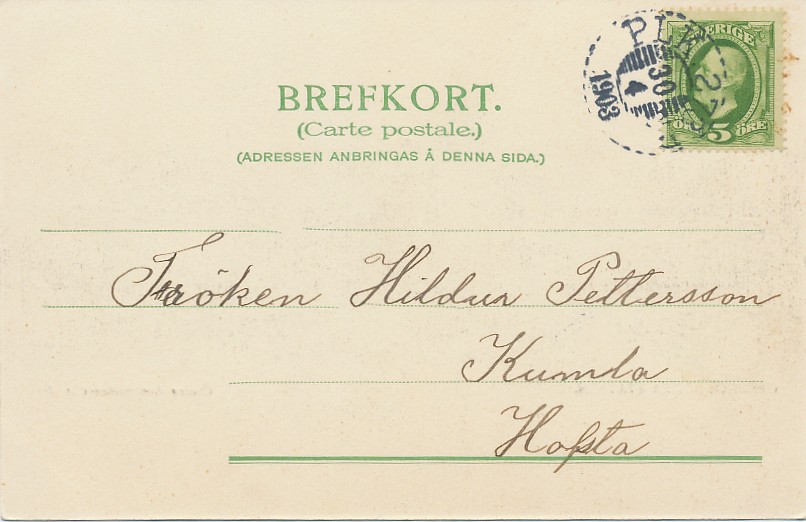 BREFKORT.
(Carte postale.)
(ADRESSEN ANBRINGAS Å DENNA SIDA.)
SVERIGE
5
ÖRE
PLK
30
4
1903
Fröken Hildur Pettersson
Kumla
Hofsta